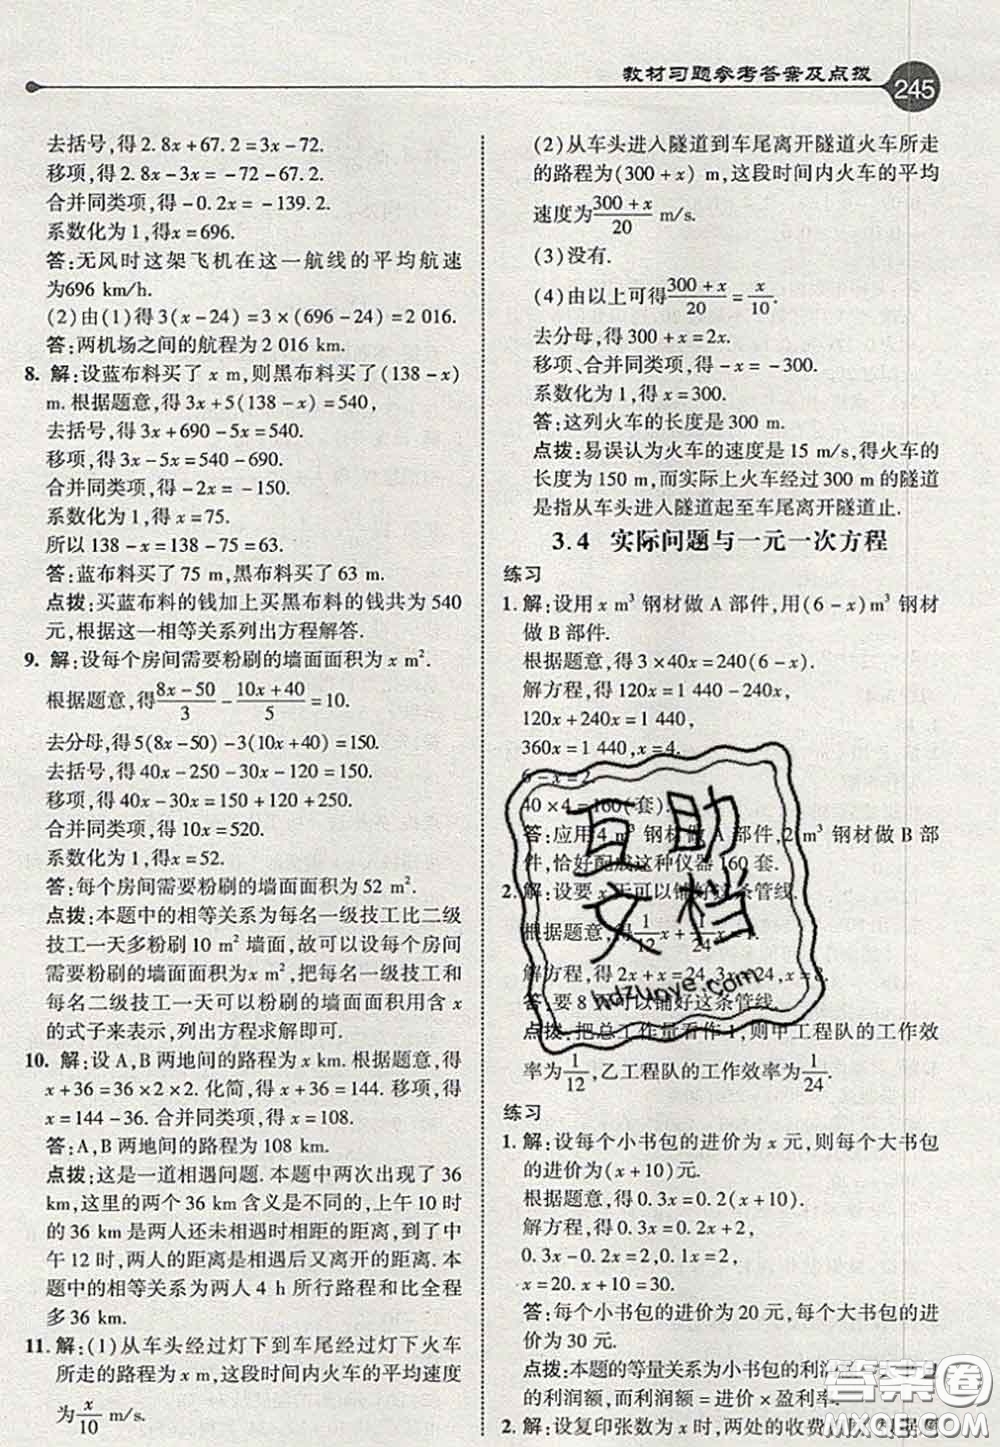 教材习题参考答案及点拨
245
去括号,得2.8x+67.2=3x-72.
移项,得2.8x-3x=-72-67.2.
合并同类项,得-0.2x=-139.2.
系数化为1,得x=696.
答:无风时这架飞机在这一航线的平均航速
为696 km/h.
(2)由(1)得3(x-24)=3×(696-24)=2 016.
答:两机场之间的航程为2 016 km.
8. 解:设蓝布料买了x m,则黑布料买了(138-x)
m.根据题意,得3x+5(138-x)=540,
去括号,得3x+690-5x=540,
移项,得3x-5x=540-690.
合并同类项,得-2x=-150.
系数化为1,得x=75.
所以138-x=138-75=63.
答:蓝布料买了75 m,黑布料买了63 m.
点拨:买蓝布料的钱加上买黑布料的钱共为540
元,根据这一相等关系列出方程解答.
9. 解:设每个房间需要粉刷的墙面面积为x m².
根据题意,得(8x-50)/3-(10x+40)/5=10.
去分母,得5(8x-50)-3(10x+40)=150.
去括号,得40x-250-30x-120=150.
移项,得40x-30x=150+120+250.
合并同类项,得10x=520.
系数化为1,得x=52.
答:每个房间需要粉刷的墙面面积为52 m².
点拨:本题中的相等关系为每名一级技工比二级
技工一天多粉刷10 m²墙面,故可以设每个房间
需要粉刷的墙面面积为x m²,把每名一级技工和
每名二级技工一天可以粉刷的墙面面积用含x
的式子来表示,列出方程求解即可.
10. 解:设A,B两地间的路程为x km.根据题意,得
x+36=36×2×2.化简,得x+36=144.移项,得
x=144-36.合并同类项,得x=108.
答:A,B两地间的路程为108 km.
点拨:这是一道相遇问题.本题中两次出现了36
km,这里的两个36 km含义是不同的,上午10时
的36 km是两人还未相遇时相距的距离,到了中
午12时,两人的距离是相遇后又离开的距离.本
题中的相等关系为两人4 h所行路程和比全程
多36 km.
11. 解:(1)从车头经过灯下到车尾经过灯下火车
所走的路程为x m,这段时间内火车的平均速度
为x/10 m/s.
(2)从车头进入隧道到车尾离开隧道火车所走
的路程为(300+x) m,这段时间内火车的平均
速度为(300+x)/20 m/s.
(3)没有.
(4)由以上可得(300+x)/20=x/10.
去分母,得300+x=2x.
移项、合并同类项,得-x=-300.
系数化为1,得x=300.
答:这列火车的长度是300 m.
点拨:易误认为火车的速度是15 m/s,得火车的
长度为150 m,而实际上火车经过300 m的隧道
是指从车头进入隧道起至车尾离开隧道止.
3.4 实际问题与一元一次方程
练习
1. 解:设用x m³钢材做A部件,用(6-x)m³钢材
做B部件.
根据题意,得3×40x=240(6-x).
解方程,得120x=1 440-240x,
120x+240x=1 440,
360x=1 440,x=4.
6-x=2.
40×4=160(套).
答:应用4 m³钢材做A部件,2 m³钢材做B部
件,恰好配成这种仪器160套.
2. 解:设要x天可以铺好这条管线.
根据题意,得1/12x+1/24x=1.
解方程,得2x+x=24,3x=24,x=8.
答:要8天可以铺好这条管线.
点拨:把总工作量看作1,则甲工程队的工作效
率为1/12,乙工程队的工作效率为1/24.
练习
1. 解:设每个小书包的进价为x元,则每个大书包
的进价为(x+10)元.
根据题意,得0.3x=0.2(x+10).
解方程,得0.3x=0.2x+2,
0.3x-0.2x=2,
x=20.x+10=30.
答:每个小书包的进价为20元,每个大书包的进价
为30元.
点拨:本题的等量关系为小书包的利润
的利润额,而利润额=进价×盈利率.
2. 解:设复印张数为x时,两处的收费
互助
文档
hdzuoye.com
答案圈
MXQE.COM